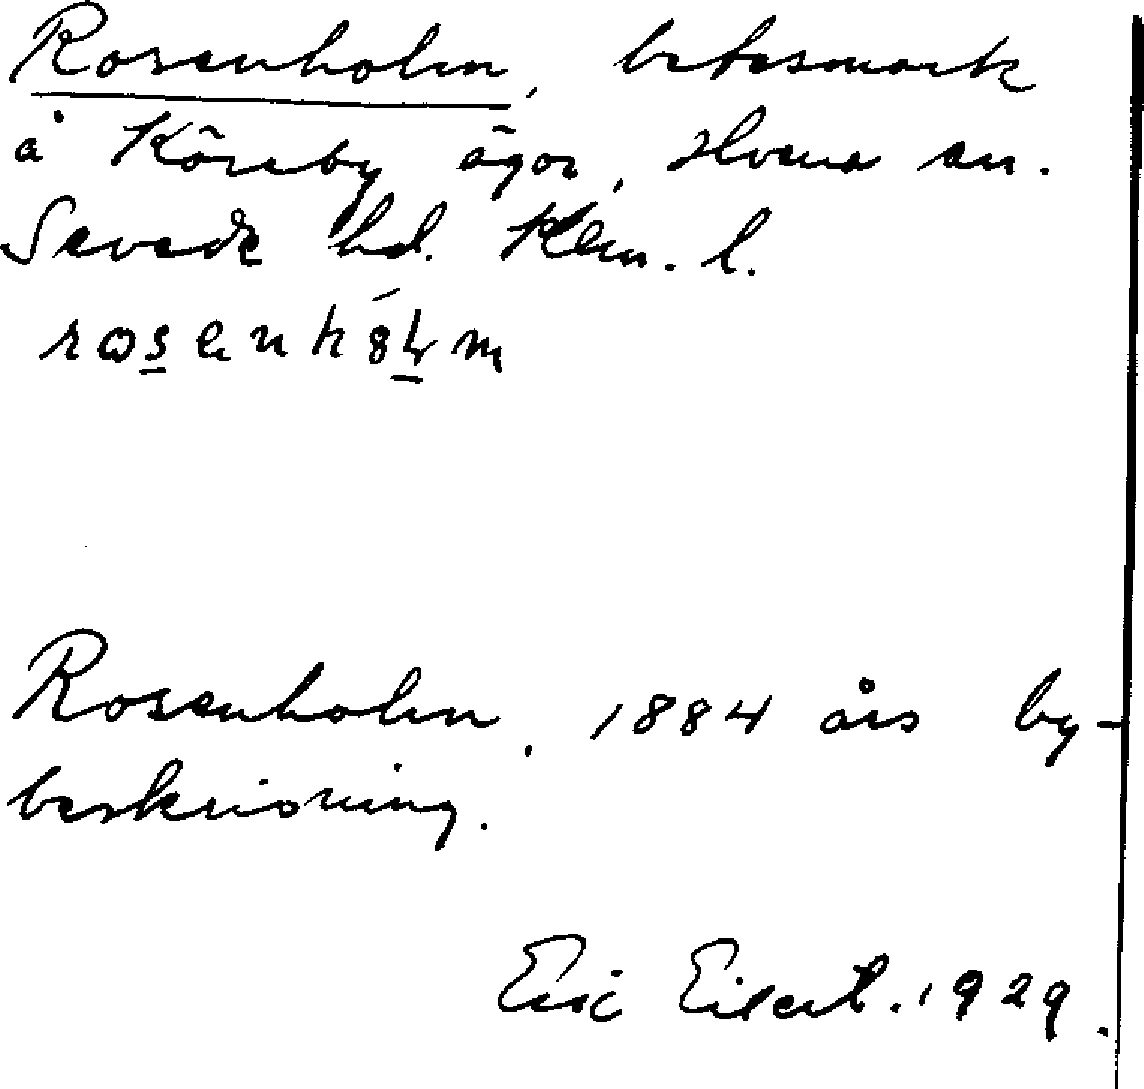 Rosenholm, betesmark
å Köreby ägor, Hvena sn.
Sevede hd. Klm. l.
rosenhólm
Rosenholm. 1884 års by-
beskrivning.
Eric Eilert. 1929.